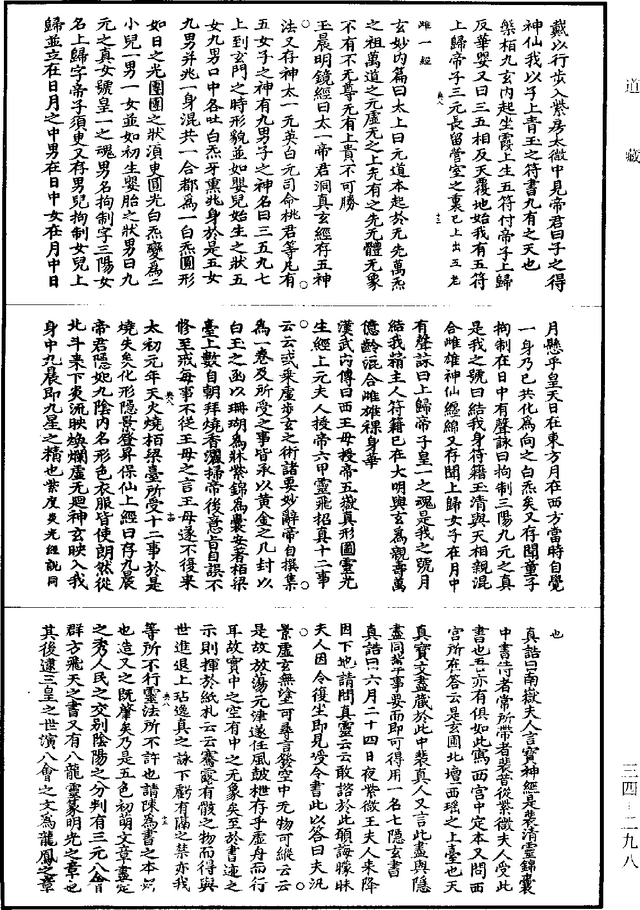 道藏
戴以行步入紫房太微中見帝君曰子之得
神仙我以子上青玉之符書九有之天也
槃桓九玄内起坐霞上生五符付帝子上歸
反華嬰又曰三五相反天覆地始我有五符
上歸帝子三元長留營室之裏
雌一經
玄妙内篇曰太上曰元道本起於无先萬炁
之祖萬道之元虛无之上先有之先无體无象
不有不无尊无有上貴不可勝
玉晨明鏡經曰太一帝君洞真玄經存五神
法又存神太一元英白元司命桃君等凡有
五女子之神有九男子之神名曰三五九七
上到玄門之時形貌並如嬰兒始生之狀五
女九男口中各吐白炁牙熏兆身於是五女
九男并兆一身混共一合都為一白炁圓形
如日之光團團之狀湏更圓光白炁變為二
小兒一男一女並如初生嬰胎之狀男曰九
元之真女號皇一之魂男名拘制字三陽女
名上歸字帝子須臾又存男兒拘制女兒上
歸並立在日月之中男在日中女在月中日
月懸乎皇天日在東方月在西方當時自覺
一身乃已共化為向之白炁矣又存聞童子
拘制在日中有聲詠曰拘制三陽九元之真
是我之號曰結我身符籍玉清與天相親混
合雌雄神仙纏綿又存聞上歸女子在月中
有聲詠曰上歸帝子皇一之魂是我之號月
結我籍主人符籍已在大明與玄為親壽萬
億齡混合雌雄裸身華
漢武内傳曰西王母授帝五嶽真形圖靈光
生經上元夫人授帝六甲靈飛招真十二事
云云或乘虛步玄之術諸要妙辭帝自撰集
為一卷及所受之事皆承以黃金之几封以
白玉之函以珊瑚為牀紫錦為囊安著栢梁
臺上數自朝拜燒香灑掃帝後意旨自誤不
脩至戒每事不從王母之言王母遂不復來
太初元年天火燒栢梁臺所受十二事於是
燒失矣化形隱景登昇保仙上經曰存九晨
帝君隱妃九陰内名形色衣服皆使朗然從
北斗來下炎流映煥爛虛无迴神玄映入我
身中九晨即九星之精也紫度炎光經說同
也
真誥曰南嶽夫人言寶神經是裴清靈錦囊
中書侍者常所帶者裴昔從紫微夫人受此
書也吾亦有俱如此寫西宮中定本又問西
宮所在答云是玄圃北壇西瑶之上臺也天
真寶文盡藏於此中裴真人又言此盡與隱
盡同當子事要而即可得用一名七隱玄書
真誥曰六月二十四日夜紫微王夫人來降
因下地請問真靈云云敢諮於此頻誨朦昧
夫人因令復坐即見受令書此以答曰夫汎
景虛玄無塗可尋言發空中无物可縱云云
是故放蕩元津遂任風鼓枻存乎虛舟而行
耳故實中之空有中之无象矣至於書迹之
示則揮於紙札云云騫露有骸之物而得與
世進退上玷逸真之詠下虧有隔之禁亦我
等所不行靈法所不許也請陳為書之本始
也造文之既肇矣乃是五色初萌文章畫定
之秀人民之交別陰陽之分判有三元八會
群方飛天之書又有八龍雲篆明光之章也
其後逮三皇之世演八會之文為龍鳳之章
三四—二九八